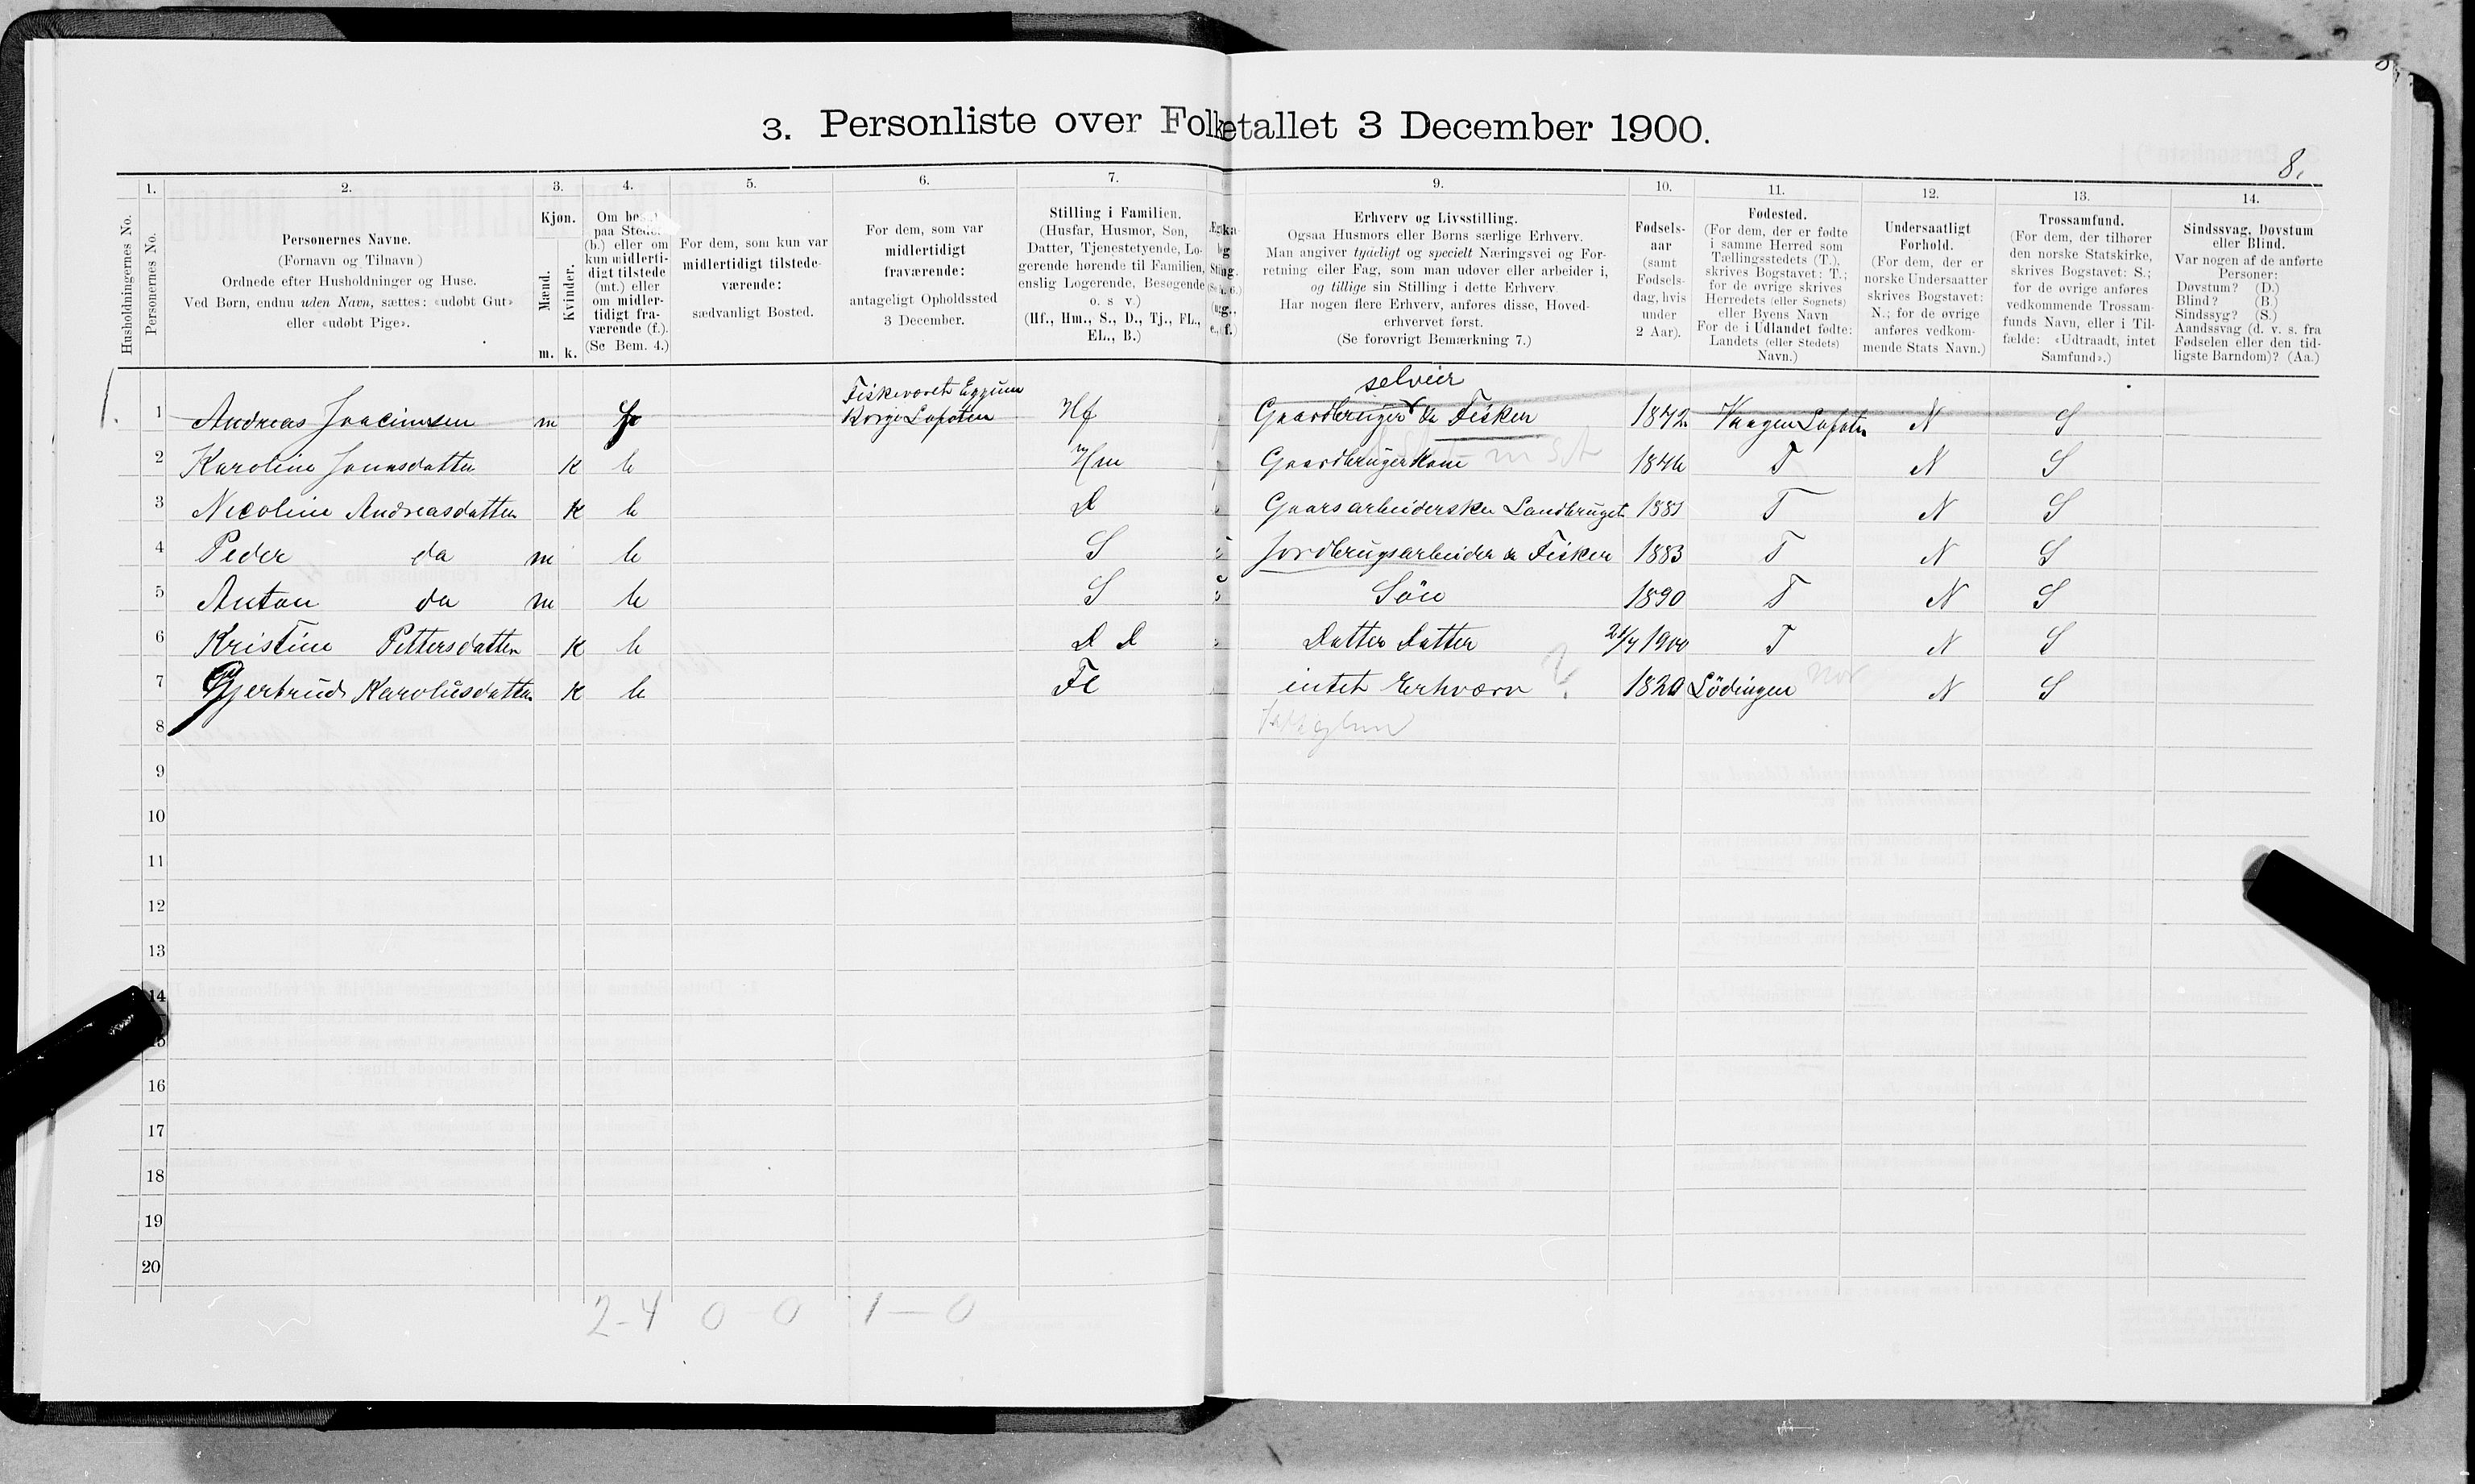 8,
3. Personliste over Folketallet 3 December 1900.
8.
Husholdningernes No.
1.
Personernes No.
2.
Personernes Navne.
(Fornavn og Tilnavn)
Ordnede efter Husholdninger og Huse.
Ved Børn, endnu uden Navn, sættes: «udøbt Gut»
eller «udøbt Pige».
3.
Kjøn.
Mænd.
Kvinder.
m. k.
4.
Om
paa
(b.) eller om
kun midlerti-
digt tilstede
(mt.) eller
om midler-
tidigt fra-
værende (f.).
(Se Bem. 4.)
5.
For dem, som kun var
midlertidigt tilstede-
værende:
sædvanligt Bosted.
6.
For dem, som var
midlertidigt
fraværende:
antageligt Opholdssted
3 December.
7.
Stilling i Familien.
(Husfar, Husmor, Søn,
Datter, Tjenestetyende, Lo-
gerende hørende til Familien,
enslig Logerende, Besøgende
o. s v.)
(Hf., Hm., S., D., Tj., FL.,
EL., B.)
9.
Erhverv og Livsstilling.
Ogsaa Husmors eller Børns særlige Erhverv.
Man angiver tydeligt og specielt Næringsvei og For-
retning eller Fag, som man udøver eller arbeider i,
og tillige sin Stilling i dette Erhverv.
Har nogen flere Erhverv, anføres disse, Hoved-
erhvervet først.
(Se forøvrigt Bemærkning 7.)
10.
Fødsels-
aar
(samt
Fødsels-
dag, hvis
under
2 Aar).
11.
Fødested.
(For dem, der er fødte
i samme Herred som
Tællingsstedets (T.),
skrives Bogstavet: T.;
for de øvrige skrives
Herredets (eller Sognets)
eller Byens Navn
For de i Udlandet fødte:
Landets (eller Stedets)
Navn.)
12.
Undersaatligt
Forhold.
(For dem, der er
norske Undersaatter
skrives Bogstavet:
N.; for de øvrige
anføres vedkom-
mende Stats Navn.)
13.
Trossamfund.
(For dem, der tilhører
den norske Statskirke,
skrives Bogstavet: S.;
for de øvrige anføres
vedkommende Trossam-
funds Navn, eller i Til-
fælde: «Udtraadt, intet
Samfund».)
14.
Sindssvag, Døvstum
eller Blind.
Var nogen af de anførte
Personer:
Døvstum? (D.)
Blind? (B.)
Sindssyg? (S.)
Aandssvag (d. v. s. fra
Fødselen eller den tid-
ligste Barndom)? (Aa.)
Fiskeværet Eggum selveier
1. 1 Andreas Joacimsen m f Borge Lofoten Hf Gaardbruger & Fisker 1842 Vaagen Lofoten N S
2 Karoline Jonasdatter k b Hm Gaardbrugerkone 1846 T N S
3 Nicoline Andreasdatter k b D Gaarsarbeiderske Landbruget 1881 T N S
4 Peder do m b S Jordbrugsarbeider & Fisker 1883 T N S
5 Anton do m b S Sön 1890 T N S
6 Kristine Pettersdatter k b D D Datter Datter 21/7 1900 T N S
7 Gjertrud Karolusdatter k b Fl intet Erhværv 1820 Lödingen N S
8
9
10
11
12
13
14
15
16
17
18
19
20
2-4 0 0 1-0